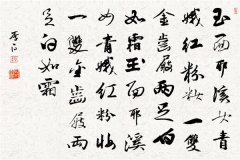 玉面耶溪女青
娥红粉妆一双
金齿屐两足白
如霜玉面耶溪
女青娥红粉妆
一双金齿屐两
足白如霜